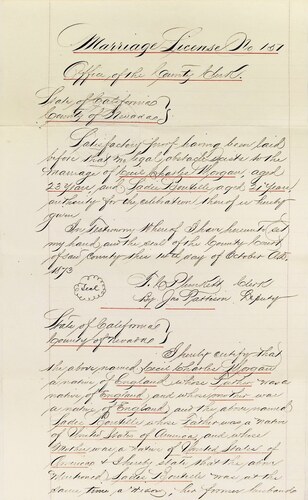 Marriage License No 151
Office of the County Clerk.
State of California
County of Nevada
Satisfactory proof having been laid
before that no legal obstacle exists to the
marriage of Charles Morgan, aged
23 Years and Sadie aged 31 Years
authority for the celebration thereof is hereby
given
In Testimony Whereof I have hereunto set
my hand and the seal of the County Court
of said County this 14th day of October A.D.
1873
Seal
Clerk
By Jno Pattison Deputy
State of California
County of Nevada
I hereby certify that
the above named Charles Morgan
a native of England whose Father was a
native of England and whose mother was
a native of England, and the above named
Sadie whose Father was a native
of United States of America and whose
Mother was a native of United States of
America & I hereby state that the above
mentioned Sadie was at the
same time, a widow, her former husband